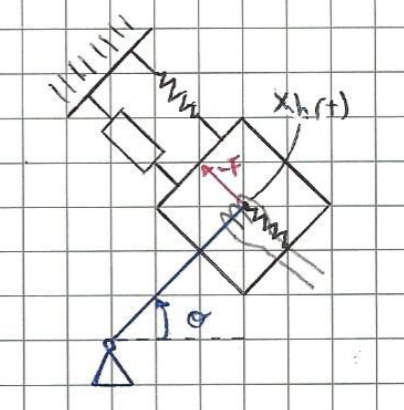 xh(t)
-F
θ